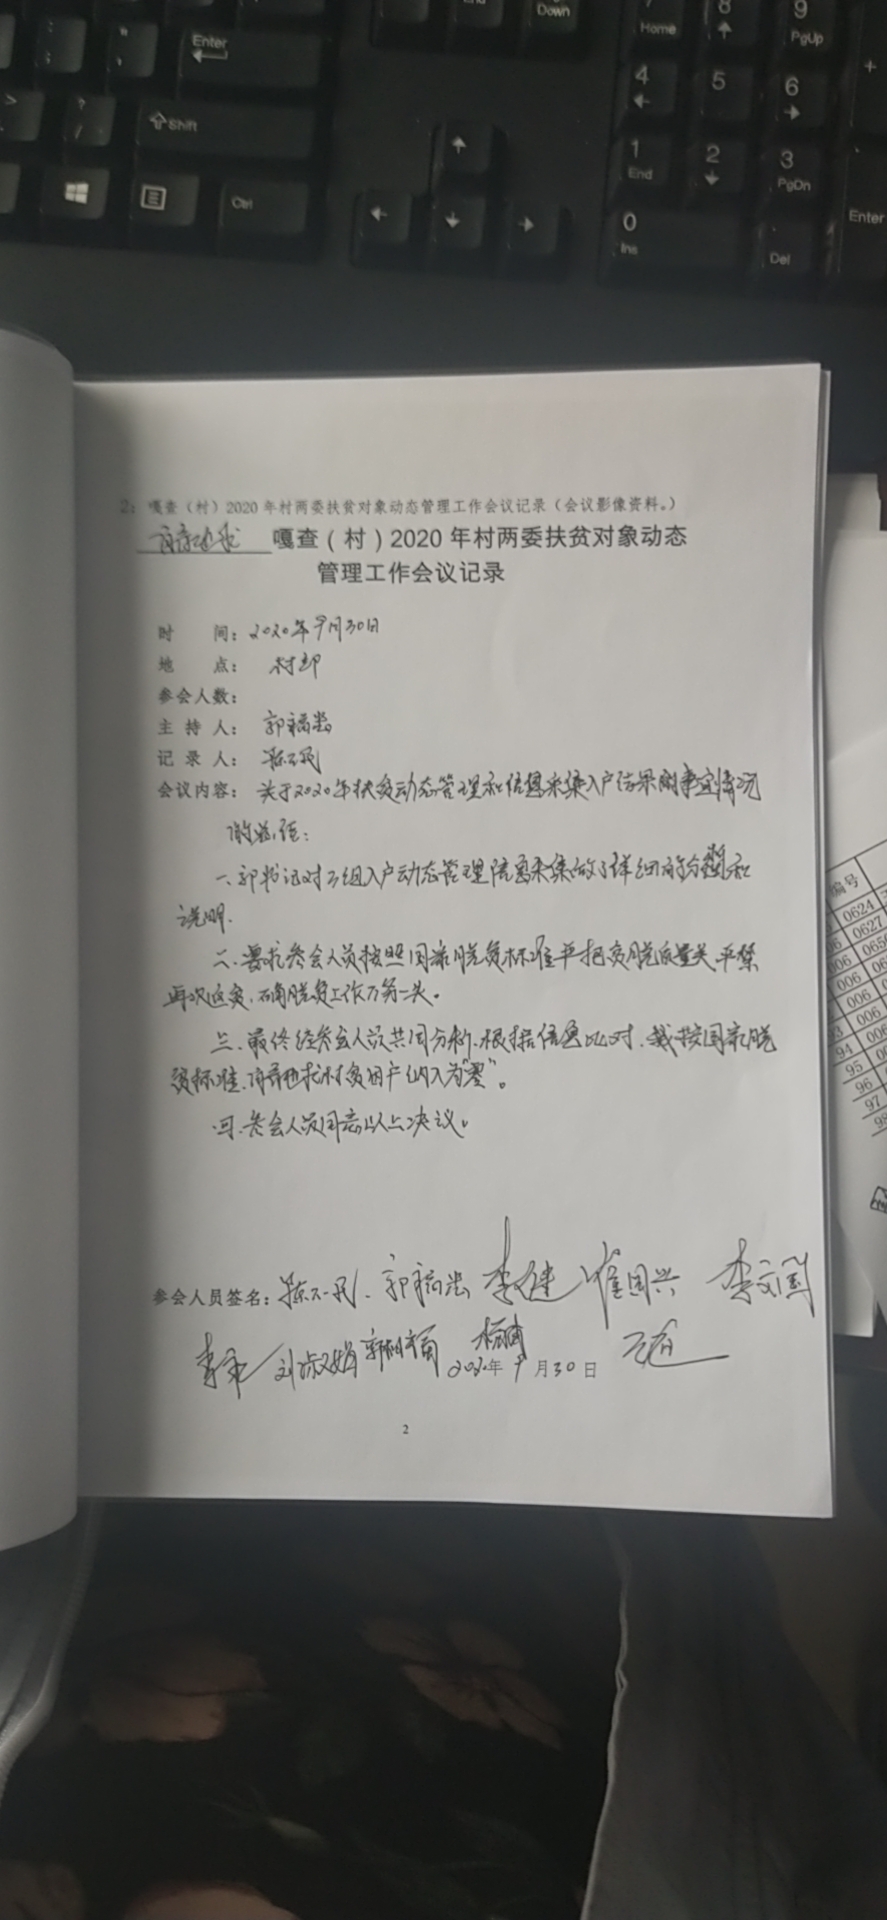 Enter
Shift
Ctrl
Down
7 Home
8
9 PgUp
+
4
5
6
1 End
2
3 PgDn
Enter
0 Ins
Del
2：嘎查（村）2020年村两委扶贫对象动态管理工作会议记录（会议影像资料。）
嘎查（村）2020年村两委扶贫对象动态
管理工作会议记录
时 间：2020年9月30日
地 点：村部
参会人数：
主持人：郭福
记录人：陈
会议内容：关于2020年扶贫动态管理和信息采集入户结果的事宜情况
一、郭书记对三组入户动态管理信息采集做了详细的分题和
说明.
二、要求参会人员按照国家脱贫标准严把贫脱质量关 严禁
再次返贫，确脱贫工作万无一失。
三、最终经参会人员共同分析、根据信息比对、我按国家脱
贫标准、村贫困户纳入为“零”。
四、参会人员同意以上决议。
参会人员签名：陈 郭福 李建 崔国兴 李文国
李军 刘淑娟 郭树福 杨
2020年9月30日
2
编号
0624
0627
006
006
006
006
94 006
95
96
97